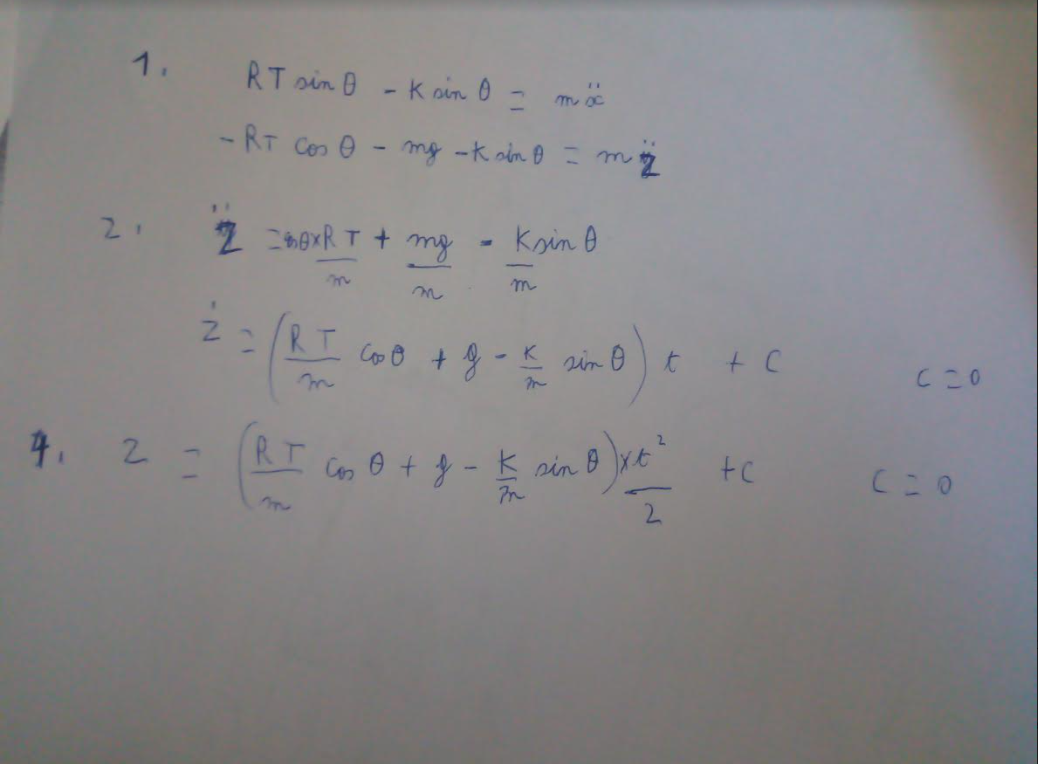 1. RT sin θ - K sin θ = mẍ
-RT cos θ - mg - K sin θ = m z̈
2. z̈ = cos θ × RT/m + mg/m - K/m sin θ
ż = (RT/m cos θ + g - K/m sin θ) t + C C = 0
4. z = (RT/m cos θ + g - K/m sin θ) × t²/2 + C C = 0